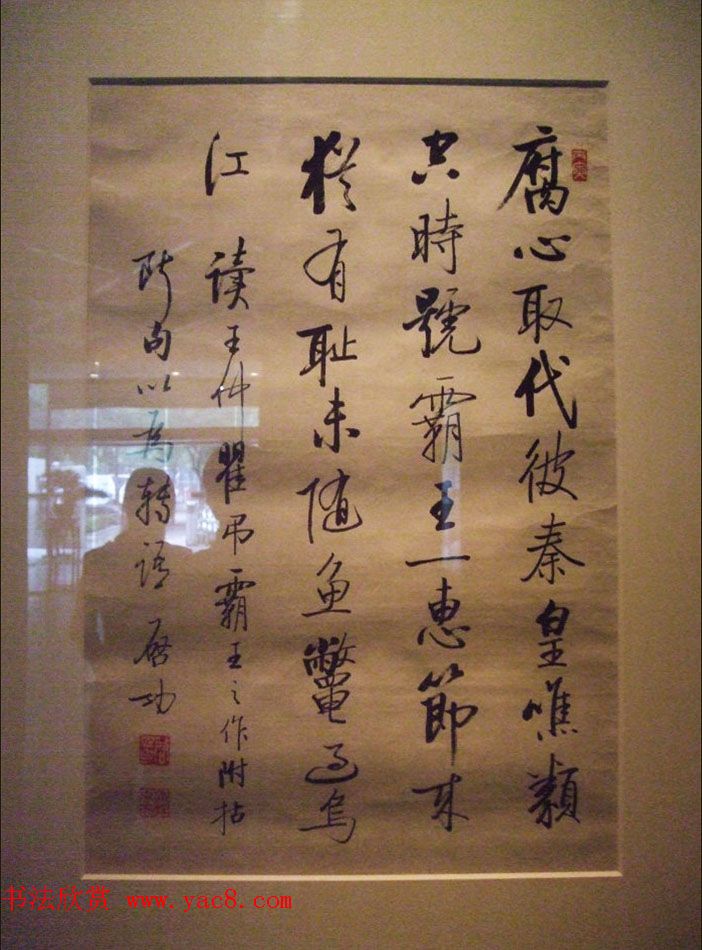 腐心取代彼秦皇噍類
空時號霸王一惠節來
猶有恥未隨魚鱉過烏
江 讀王仲瞿弔霸王之作附拈
句以為轉語 啟功
书法欣赏 www.yac8.com